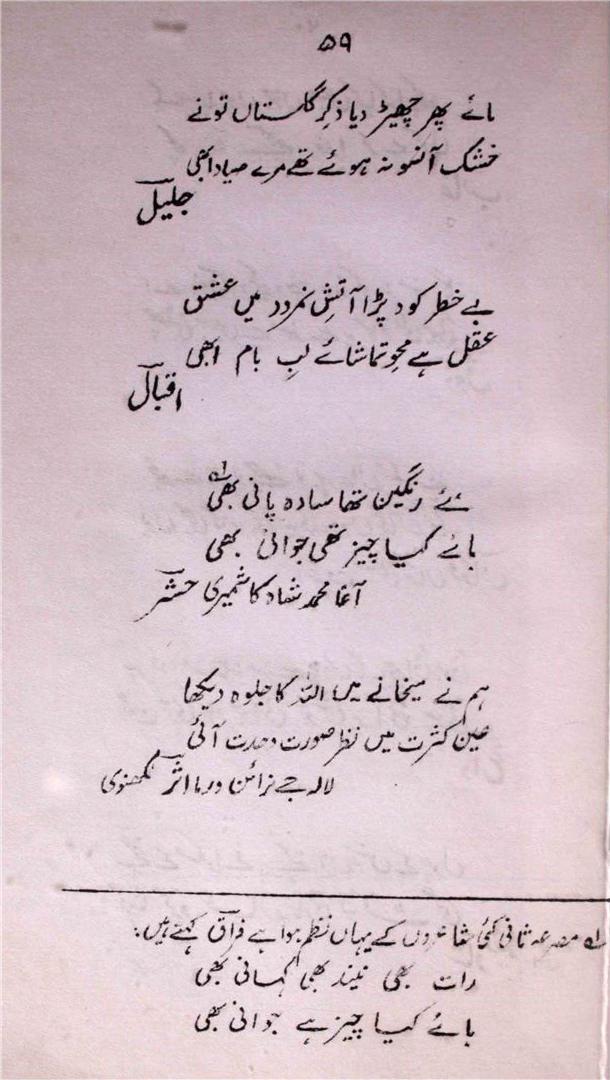 ۵۹
ہائے پھر چھیڑ دیا ذکرِ گلستاں تونے
خشک آنسو نہ ہوئے تھے مرے صیاد ابھی
جلیل
بے خطر کود پڑا آتشِ نمرود میں عشق
عقل ہے محوِ تماشائے لبِ بام ابھی
اقبال
مے رنگین تھا سادہ پانی بھی؂۱
ہائے کیا چیز تھی جوانی بھی
آغا محمد شاہ کاشمیری حشر
ہم نے میخانے میں اللہ کا جلوہ دیکھا
عین کثرت میں نظر صورت وحدت آئی
لالہ جے نرائن ورما اثر لکھنوی
؂۱ مصرعہ ثانی کئی شاعروں کے یہاں نظم ہوا ہے فراق کہتے ہیں:
رات بھی نیند بھی کہانی بھی
ہائے کیا چیز ہے جوانی بھی